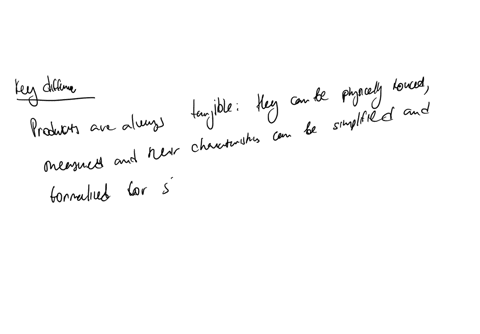 Key difference
Products are always tangible: they can be physically touched,
measured and their characteristics can be simplified and
formalised for s